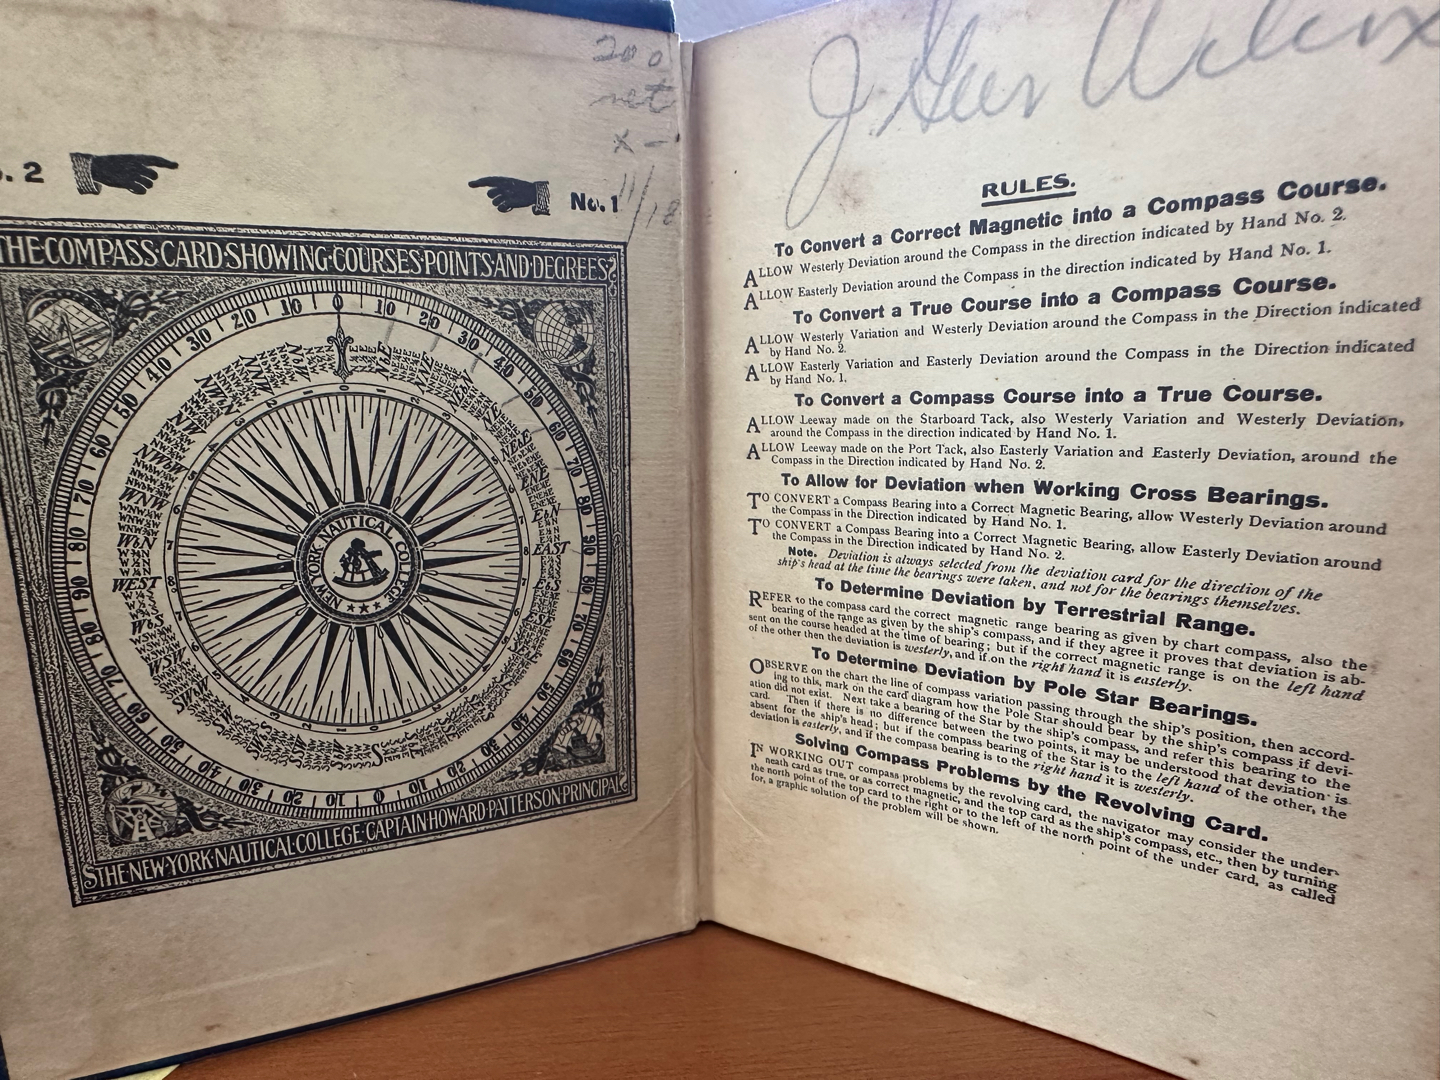 200
net
x -
11/18
. 2
No. 1
THE·COMPASS·CARD·SHOWING·COURSES·POINTS·AND·DEGREES
10 0 10 20 30 40 50 60 70 80 90 80 70 60 50 40 30 20 10 0 10 20 30 40 50 60 70 80 90 80 70 60 50 40 30 20
NEbE
ENE
EbN
EAST
EbS
ESE
S
WSW
WbS
WEST
WbN
WNW
NWbW
NW
NWbN
NNW
NbW
NEW YORK NAUTICAL COLLEGE
THE·NEW·YORK·NAUTICAL·COLLEGE·CAPTAIN·HOWARD·PATTERSON·PRINCIPAL
J Wilcox
RULES.
To Convert a Correct Magnetic into a Compass Course.
ALLOW Westerly Deviation around the Compass in the direction indicated by Hand No. 2.
ALLOW Easterly Deviation around the Compass in the direction indicated by Hand No. 1.
To Convert a True Course into a Compass Course.
ALLOW Westerly Variation and Westerly Deviation around the Compass in the Direction indicated
by Hand No. 2.
ALLOW Easterly Variation and Easterly Deviation around the Compass in the Direction indicated
by Hand No. 1.
To Convert a Compass Course into a True Course.
ALLOW Leeway made on the Starboard Tack, also Westerly Variation and Westerly Deviation,
around the Compass in the direction indicated by Hand No. 1.
ALLOW Leeway made on the Port Tack, also Easterly Variation and Easterly Deviation, around the
Compass in the Direction indicated by Hand No. 2.
To Allow for Deviation when Working Cross Bearings.
TO CONVERT a Compass Bearing into a Correct Magnetic Bearing, allow Westerly Deviation around
the Compass in the Direction indicated by Hand No. 1.
TO CONVERT a Compass Bearing into a Correct Magnetic Bearing, allow Easterly Deviation around
the Compass in the Direction indicated by Hand No. 2.
Note. Deviation is always selected from the deviation card for the direction of the
ship's head at the time the bearings were taken, and not for the bearings themselves.
To Determine Deviation by Terrestrial Range.
REFER to the compass card the correct magnetic range bearing as given by chart compass, also the
bearing of the range as given by the ship's compass, and if they agree it proves that deviation is ab-
sent on the course headed at the time of bearing; but if the correct magnetic range is on the left hand
of the other then the deviation is westerly, and if on the right hand it is easterly.
To Determine Deviation by Pole Star Bearings.
OBSERVE on the chart the line of compass variation passing through the ship's position, then accord-
ing to this, mark on the card diagram how the Pole Star should bear by the ship's compass if devi-
ation did not exist. Next take a bearing of the Star by the ship's compass, and refer this bearing to the
card. Then if there is no difference between the two points, it may be understood that deviation is
absent for the ship's head; but if the compass bearing of the Star is to the left hand of the other, the
deviation is easterly, and if the compass bearing is to the right hand it is westerly.
Solving Compass Problems by the Revolving Card.
IN WORKING OUT compass problems by the revolving card, the navigator may consider the under-
neath card as true, or as correct magnetic, and the top card as the ship's compass, etc., then by turning
the north point of the top card to the right or to the left of the north point of the under card, as called
for, a graphic solution of the problem will be shown.